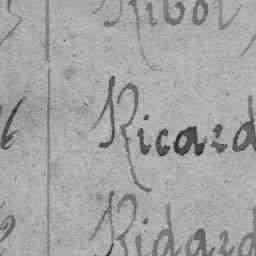 Ribot
6 Ricard
Ridard